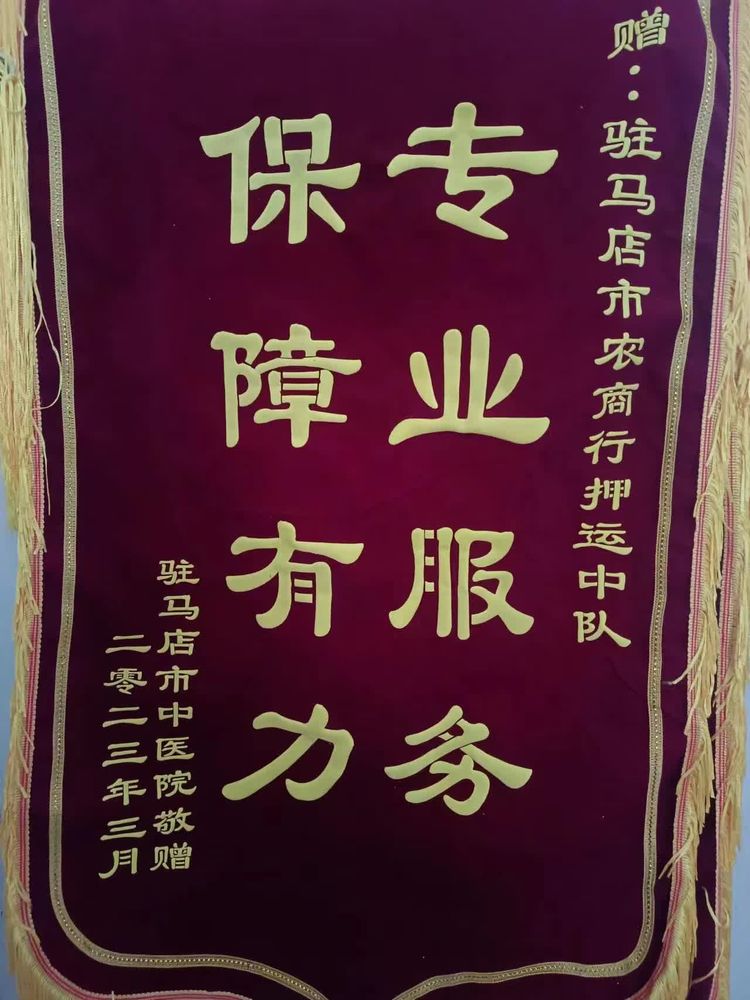 赠：驻马店市农商行押运中队
专业服务
保障有力
驻马店市中医院敬赠
二零二三年三月